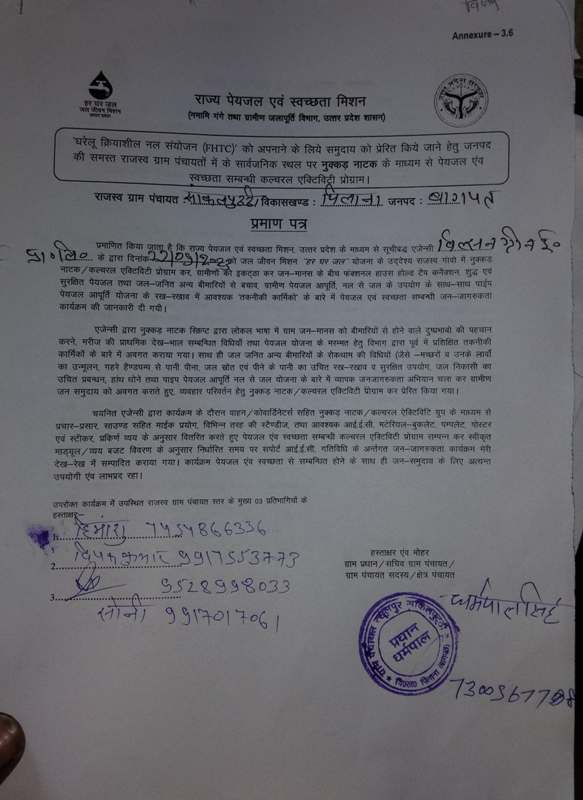 Annexure – 3.6
हर घर जल
जल जीवन मिशन
राज्य पेयजल एवं स्वच्छता मिशन
(नमामि गंगे तथा ग्रामीण जलापूर्ति विभाग, उत्तर प्रदेश शासन)
'घरेलू क्रियाशील नल संयोजन (FHTC)' को अपनाने के लिये समुदाय को प्रेरित किये जाने हेतु जनपद
की समस्त राजस्व ग्राम पंचायतों में के सार्वजनिक स्थल पर नुक्कड़ नाटक के माध्यम से पेयजल एंव
स्वच्छता सम्बन्धी कल्चरल एक्टिविटी प्रोग्राम।
राजस्व ग्राम पंचायत विकासखण्ड : पिलाना जनपद : बागपत
प्रमाण पत्र
प्रमाणित किया जाता है कि राज्य पेयजल एवं स्वच्छता मिशन, उत्तर प्रदेश के माध्यम से सूचीबद्ध एजेन्सी
प्रा० लि० के द्वारा दिनांक को जल जीवन मिशन "हर घर जल" योजना के उद्देश्य राजस्व गांवो में नुक्कड़
नाटक/कल्चरल एक्टिविटी प्रोग्राम कर, ग्रामीणों की इकट्ठा कर जन-मानस के बीच फंक्शनल हाउस होल्ड टैप कनैक्शन, शुद्ध एवं
सुरक्षित पेयजल तथा जल-जनित अन्य बीमारियों से बचाव, ग्रामीण पेयजल आपूर्ति, नल से जल के उपयोग के साथ-साथ पाईप
पेयजल आपूर्ति योजना के रख-रखाव में आवश्यक 'तकनीकी कार्मिको' के बारे में पेयजल एवं स्वच्छता सम्बन्धी जन-जागरूकता
कार्यक्रम की जानकारी दी गयी।
एजेन्सी द्वारा नुक्कड़ नाटक स्क्रिप्ट द्वारा लोकल भाषा में ग्राम जन-मानस को बीमारियों से होने वाले दुष्प्रभावो की पहचान
करने, मरीज की प्राथमिक देख-भाल सम्बन्धित विधियों तथा पेयजल योजना के मरम्मत हेतु विभाग द्वारा पूर्व में प्रशिक्षित तकनीकी
कार्मिकों के बारे में अवगत कराया गया। साथ ही जल जनित अन्य बीमारियों के रोकथाम की विधियों (जैसे –मच्छरों व उनके लार्वा
का उन्मूलन, गहरे हैण्डपम्प से पानी पीना, जल स्रोत एवं पीने के पानी का उचित रख-रखाव व सुरक्षित उपयोग, जल निकासी का
उचित प्रबन्धन, हांथ धोनें तथा पाइप पेयजल आपूर्ति नल से जल योजना के बारे में व्यापक जनजागरुकता अभियान चला कर ग्रामीण
जन समुदाय को अवगत कराते हुए, व्यवहार परिवर्तन हेतु नुक्कड़ नाटक/कल्चरल एक्टिविटी प्रोग्राम कर प्रेरित किया गया।
चयनित एजेन्सी द्वारा कार्यक्रम के दौरान वाहन/कोवार्डिनेटर्स सहित नुक्कड़ नाटक/कल्चरल एक्टिविटि ग्रुप के माध्यम से
प्रचार-प्रसार, साउण्ड सहित माईक प्रयोग, विभिन्न तरह की स्टैण्डीज, तथा आवश्यक आई.ई.सी. मटेरियल-बुकलेट, पम्पलेट, पोस्टर
एवं स्टीकर, प्रकिर्ण व्यय के अनुसार वितरित करते हुए पेयजल एवं स्वच्छता सम्बन्धी कल्चरल एक्टिविटी प्रोग्राम सम्पन्न कर स्वीकृत
माड्यूल/व्यय बजट विवरण के अनुसार निर्धारित समय पर सपोर्ट आई.ई.सी. गतिविधि के अर्न्तगत जन-जागरूकता कार्यक्रम मेरी
देख-रेख में सम्पादित कराया गया। कार्यक्रम पेयजल एंव स्वच्छता से सम्बन्धित होने के साथ ही जन-समुदाय के लिए अत्यन्त
उपयोगी एवं लाभप्रद रहा।
उपरोक्त कार्यक्रम में उपस्थित राजस्व ग्राम पंचायत स्तर के मुख्य 03 प्रतिभागियों के
हस्ताक्षर-
1. हिमांशु 7454866336
2. दिपक कुमार 9917553773
3. 9528998033
सोनी 9917017061
हस्ताक्षर एंव मोहर
ग्राम प्रधान/सचिव ग्राम पंचायत/
ग्राम पंचायत सदस्य/क्षेत्र पंचायत
धर्मपाल सिंह
प्रधान
धर्मपाल